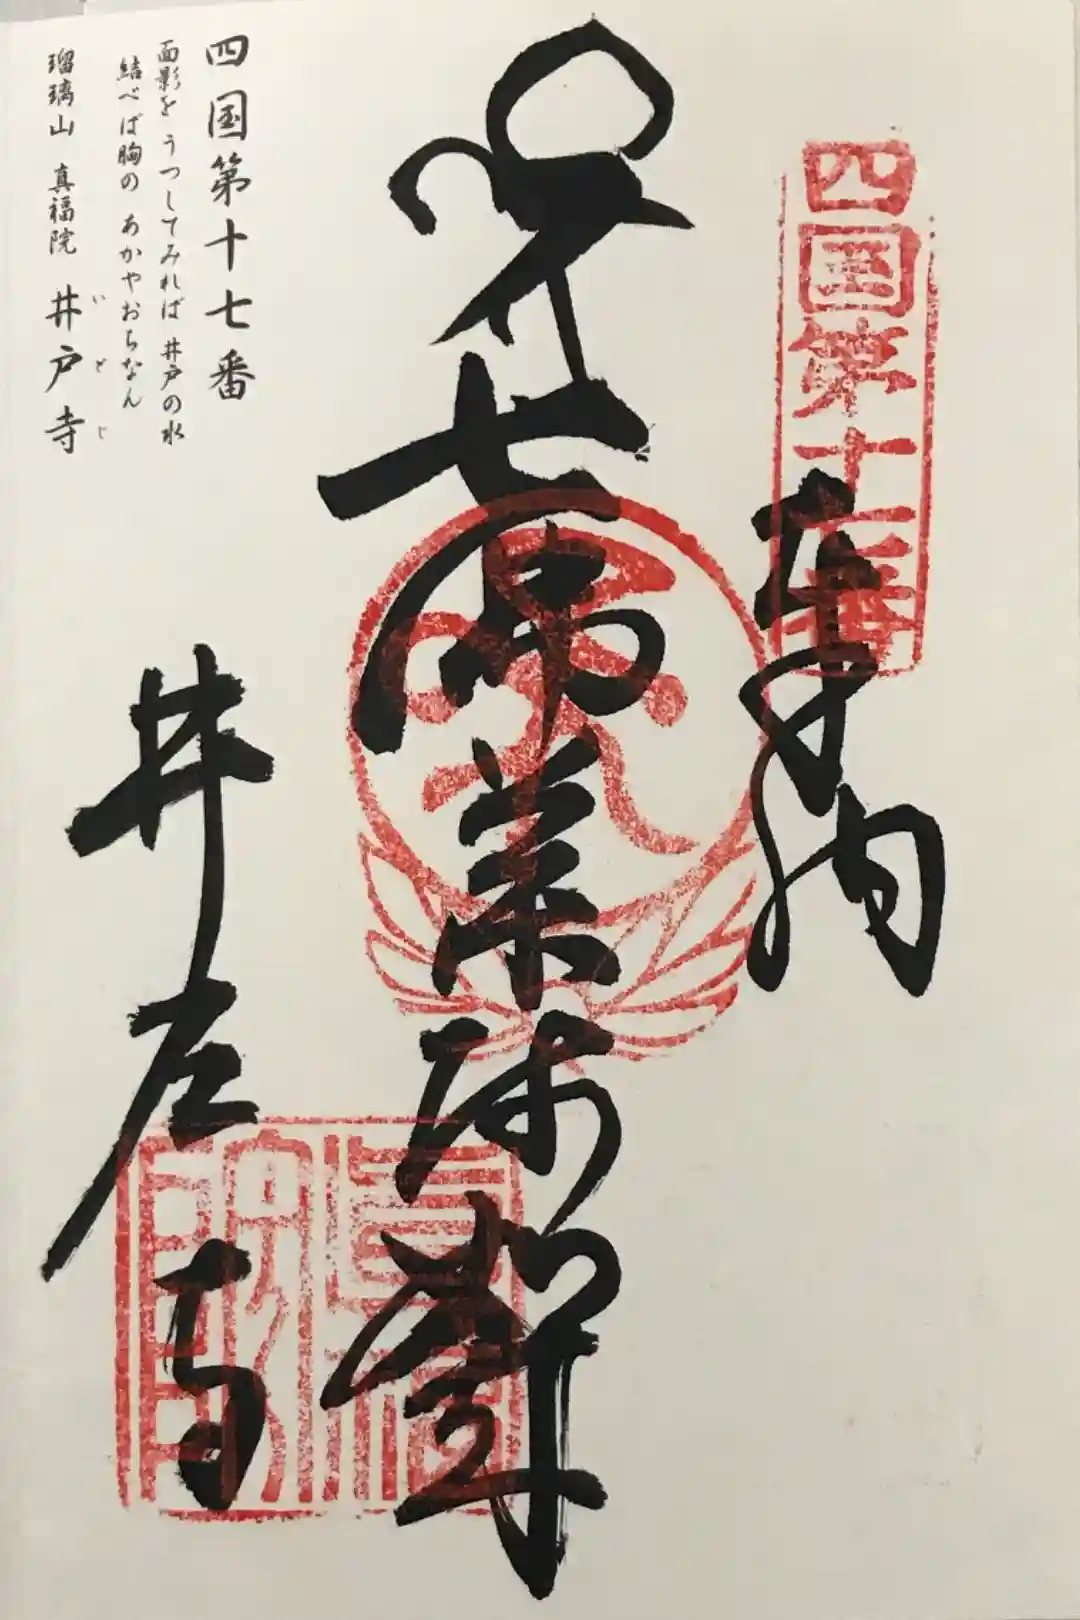 四国第十七番
奉納
七佛薬師
井戸寺
四国第十七番
面影を うつしてみれば 井戸の水
結べば胸の あかやおちなん
いどじ
瑠璃山 真福院 井戸寺